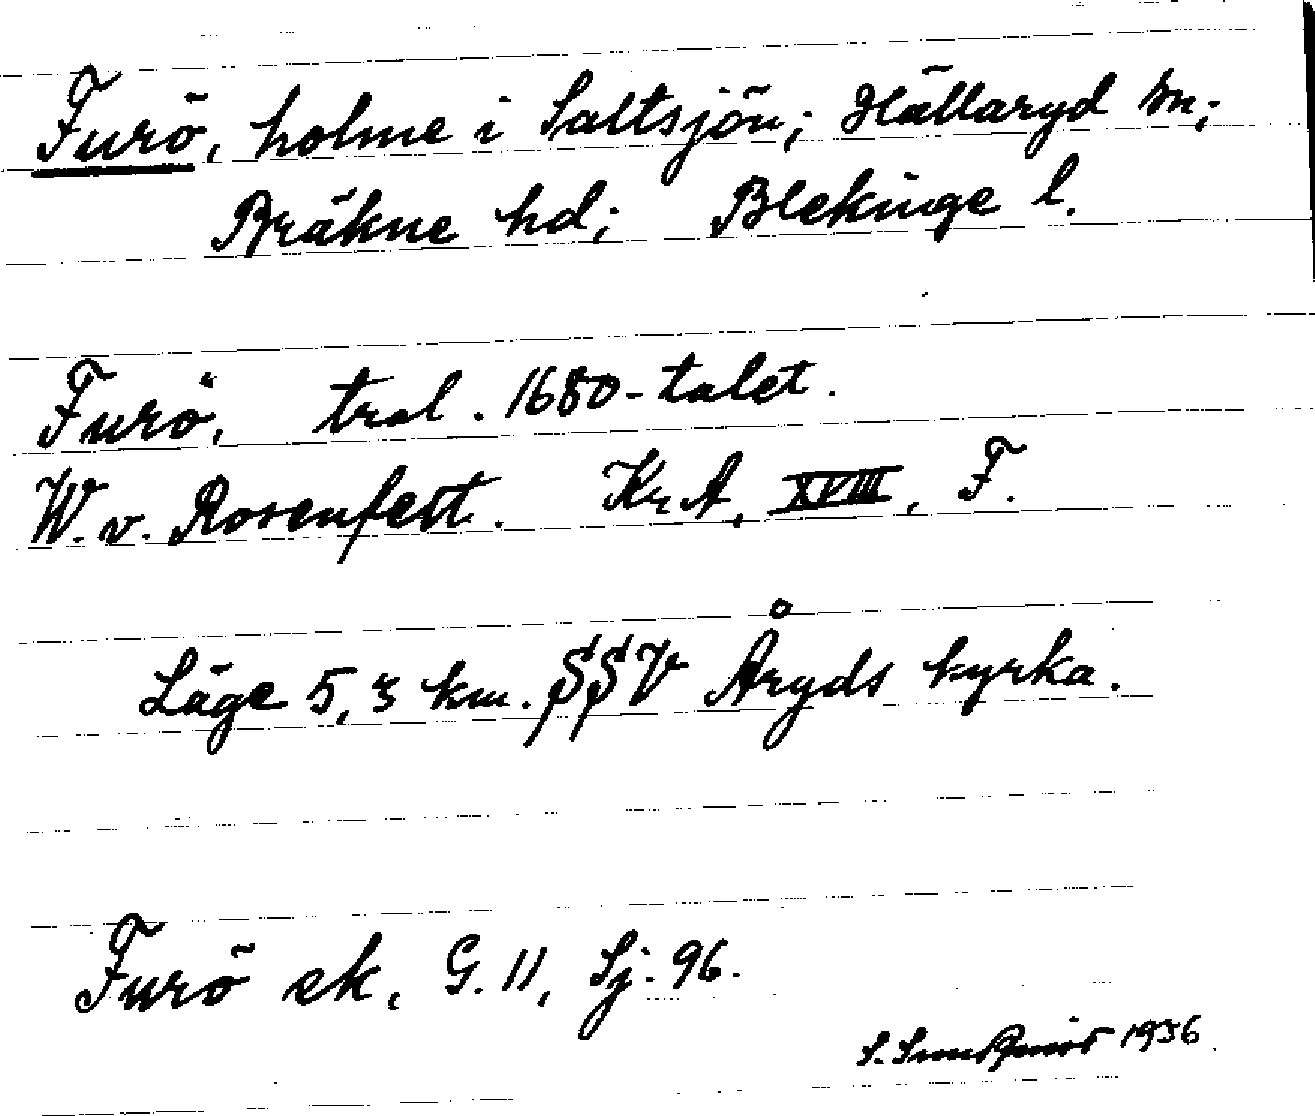 Furö, holme i Saltsjön; Hällaryd sn;
Bräkne hd; Blekinge l.
Furö, tral. 1680-talet.
W. v. Rosenfelt. KrA, XVIII, F.
Läge 5,3 km. SSV Åryds kyrka.
Furö ek, G. 11, Sj. 96.
S. 1936